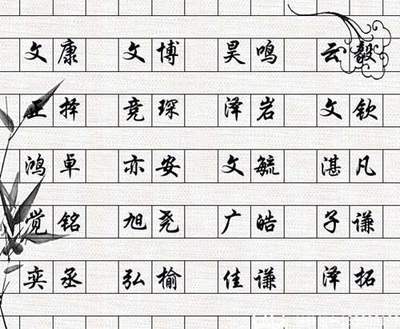 文康 文博 昊鸣 云毅
正择 竞琛 泽岩 文钦
鸿卓 亦安 文毓 湛凡
觉铭 旭尧 广皓 子谦
奕丞 弘榆 佳谦 泽拓